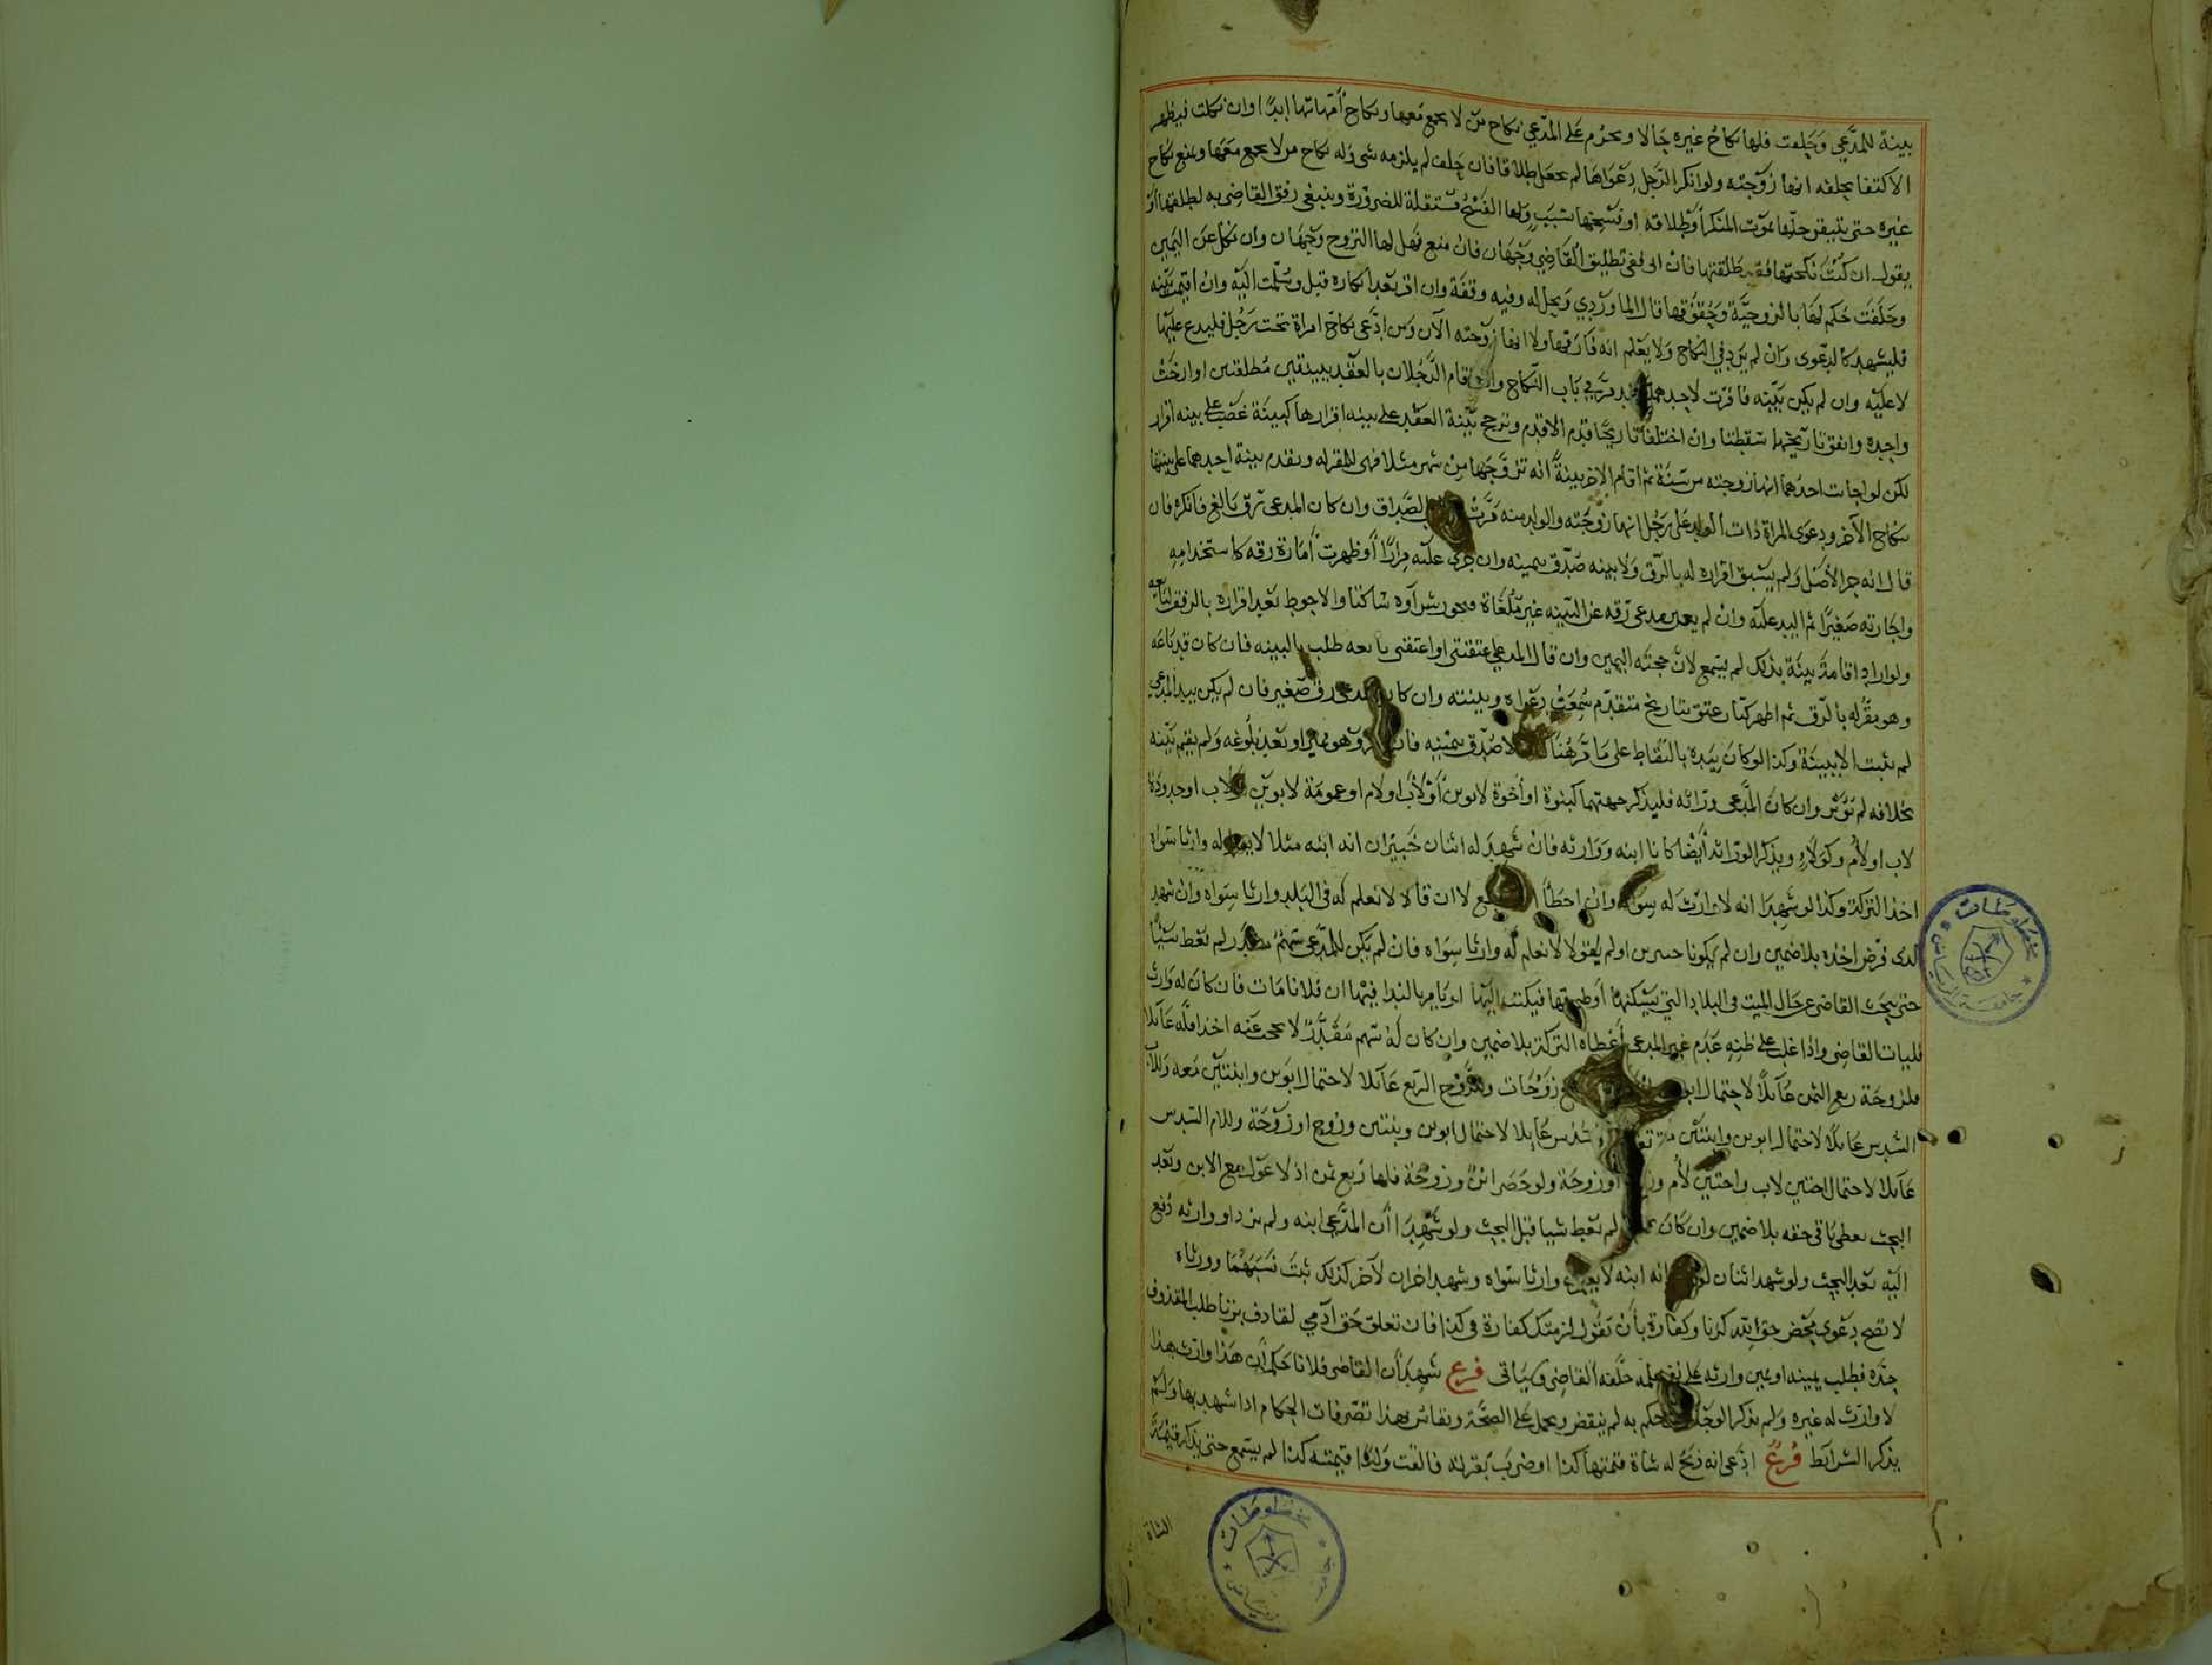 بينة للمدعي وحلفت فلها نكاح غيره حالا ويحرم على المدعي نكاح من لا يجمع معها ونكاح أمهاتها ابدا وان نكلت فيظهر
الاكتفا بحلفه انها زوجته ولو انكر الرجل دعواها لم يجعل طلاقا فان حلف لم يلزمه شى وله نكاح من لا يجمع معها ويمنع نكاح
غيره حتى يتيقن حلها بموت المنكر أو طلاقه او فسخها بسبب ولها الفسخ مستقلة للضرورة وينبغي رفق القاضي به ليطلقها أو
يقول ان كنت نكحتها فقد طلقتها فان ابى ففي تطليق القاضي وجهان فان منع فهل لها التزوج وجهان وان نكل عن اليمين
وحلفت حكم لها بالزوجية وحقوقها قال الماوردي ويحل له وفيه وقفة وان اقر بعد انكاره قبل وسلمت اليه وان اقيمت بينة
فليشهد كالدعوى وان لم يزد في النكاح ولا يعلم انه فارقها ولا انها زوجته الآن ومن ادعى نكاح امراة تحت رجل فليدع عليها
لا عليه وان لم يكن بينه فاقرت لاحدهما فقد مر في باب النكاح وان اقام الرجلان بالعقد بينتين مطلقتين او ارختا
واحده واتفق تاريخهما سقطتا وان اختلفا تاريخا قدم الاقدم وترجح بينة العقد على بينه اقرارها كبينة غصب على بينه اقرار
لكن لو اجابت احدهما انها زوجته من سنة ثم اقام الاخر بينة انه تزوجها من شهر مثلا فهى للمقر له وتقدم بينة احدهما على بينتها
بنكاح الآخر ودعوى المراة ذات الولد على رجل انها زوجته والولد منه مرت الصداق وان كان المدعى رق بالغ فانكر فان
قال انه حر الأصل ولم يسبق اقراره له بالرق ولا بينه صدق بيمينه وان جرى عليه مرارا أو ظهرت أمارة رقه كاستخدامه
واجارته صغيرا ثم اليد عليه وان لم يعين مدعى رقه عن البينه غير ملغاة ويجوز شراؤه ساكتا والاحوط بعد اقراره بالرق لبائعه
ولو اراد اقامة بينة بذلك لم يسمع لان حجته اليمين وان قال المدعي اعتقتني او اعتقنى بائعه طلب بالبينه فان كان قد باعه
وهو مقر له بالرق ثم اظهر كتاب عتق بتاريخ متقدم سمعت دعواه وبينته وان كان المدعى رق صغير فان لم يكن بيد المدعي
لم يثبت الا ببينة وكذا لو كان بيده بالتقاط على ما مر هناك والا صدق بيمينه فان انكر وهو مميز او بعد بلوغه ولم يقم بينه
بخلافه لم تؤثر وان كان المدعى وراثه فليذكر جهتهما كبنوة او أخوة لابوين أو لأب او لام او عمومة لابوين او لاب او جدودة
لاب او لأم وكولاء ويذكر الوراثه أيضا كانا ابنه ووارثه فان شهد له اثنان خبيران انه ابنه مثلا لا يعلم له وارثا سواه
اخذ التركة وكذا لو شهدا انه لا وارث له سواه وان اخطأ لا ان قالا لا نعلم له فى البلد وارثا سواه وان شهد
لذى فرض اخذه بلا ضمين وان لم يكونا خبيرين او لم يقولا لا نعلم له وارثا سواه فان لم يكن للمدعى سهم مقدر لم تعط شيئا
حتى يبحث القاضى عن حال الميت فى البلاد التي يسكنها أو طرقها فيكتب اليها او يامر بالندا فيها ان فلانا مات فان كان له وارث
فليات القاضى واذا غلب على ظنه عدم غير المدعى أعطاه التركة بلا ضمين وان كان له سهم مقدر لا يحجب عنه اخذ اقله عائلا
فلزوجة ربع الثمن عائلا لاحتمال زوجات وللزوج الربع عائلا لاحتمال ابوين وابنتين معه وللاب
السدس عائلا لاحتمال ابوين وابنتين سدس عائلا لاحتمال ابوين وبنتين وزوج او زوجة وللام السدس
عائلا لاحتمال اختين لاب واختين لأم او زوجة ولو حضر ابن وزوجة فلها ربع ثمن اذ لا عول مع الابن وبعد
البحث يعطى باقى حقه بلا ضمين وان كان لم تعط شيا قبل البحث ولو شهدا أن المدعى ابنه ولم يزد او وارثه دفع
اليه بعد البحث ولو شهد اثنان انه ابنه لا يعلم وارثا سواه وشهد اخران لآخر كذلك ثبت نسبهما وورثاه
لا تصح دعوى بمحض حق الله كزنا وكفارة بأن تقول لزمتك كفارة فى كذا فان تعلق حق آدمي لقاذف بزنا طلب المقذوف
حده فطلب يمينه او يمين وارثه على نفى علمه حلفه القاضى وسياتى فرع شهدا أن القاضى فلانا حكم أن هذا وارث هذا
لا وارث له غيره ولم يذكر الوجه حكم به لم ينقض ويحمل على الصحة ويقاس بهذا تصرفات الحكام اذا شهد بها ولم
يذكر الشرائط فرع ادعى انه ذبح له شاة قيمتها كذا او ضرب بقرته فالقت ولدا قيمته كذا لم يسمع حتى يذكر قيمة
الشاة
مخطوطات
جامعة الرياض
مخطوطات
جامعة الرياض